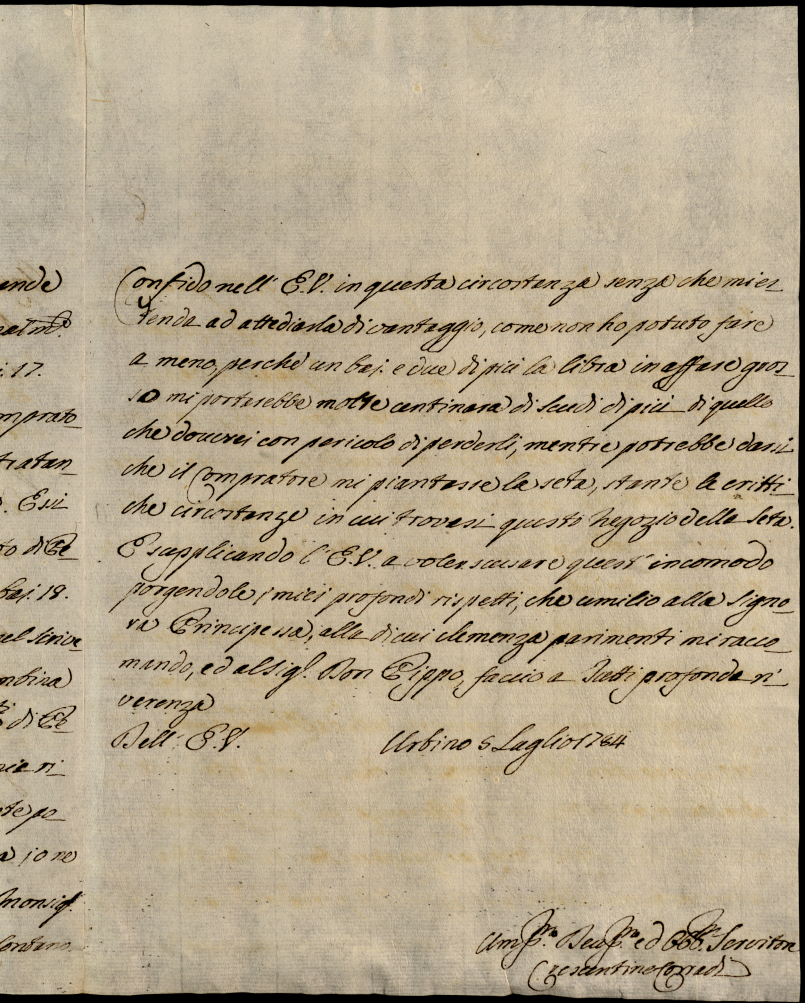 ende
nal m.to
j. 17.
mprato
tratan
. E si
to di Pe
baj. 18.
uel scrive
mbina
di Pe
ria ri
nte po
a io ne
Monsig.
Confido nell' E.V. in questa circostanza senza che mi es
tenda ad attediarla di vantaggio, come non ho potuto fare
a meno, perche un baj. e due di più la libra in affare gros
so mi porterebbe molte centinara di Scudi di più di quello
che dovrei con pericolo di perderli, mentre potrebbe darsi
che il Compratore mi piantasse la seta, stante le critti
che circostanze in cui trovasi questo Negozio della Seta.
E supplicando l' E.V. a voler scusare quest' incomodo
porgendole i miei profondi rispetti, che umilio alla Signo
ra Principessa, alla di cui clemenza parimenti mi racco
mando, ed al Sig. Don Pippo, faccio a Tutti profonda ri
verenza
Dell' E.V. Urbino 5 Luglio 1784
Um.mo Dev.mo ed Obb.mo Servitore
Crescentino Corradi